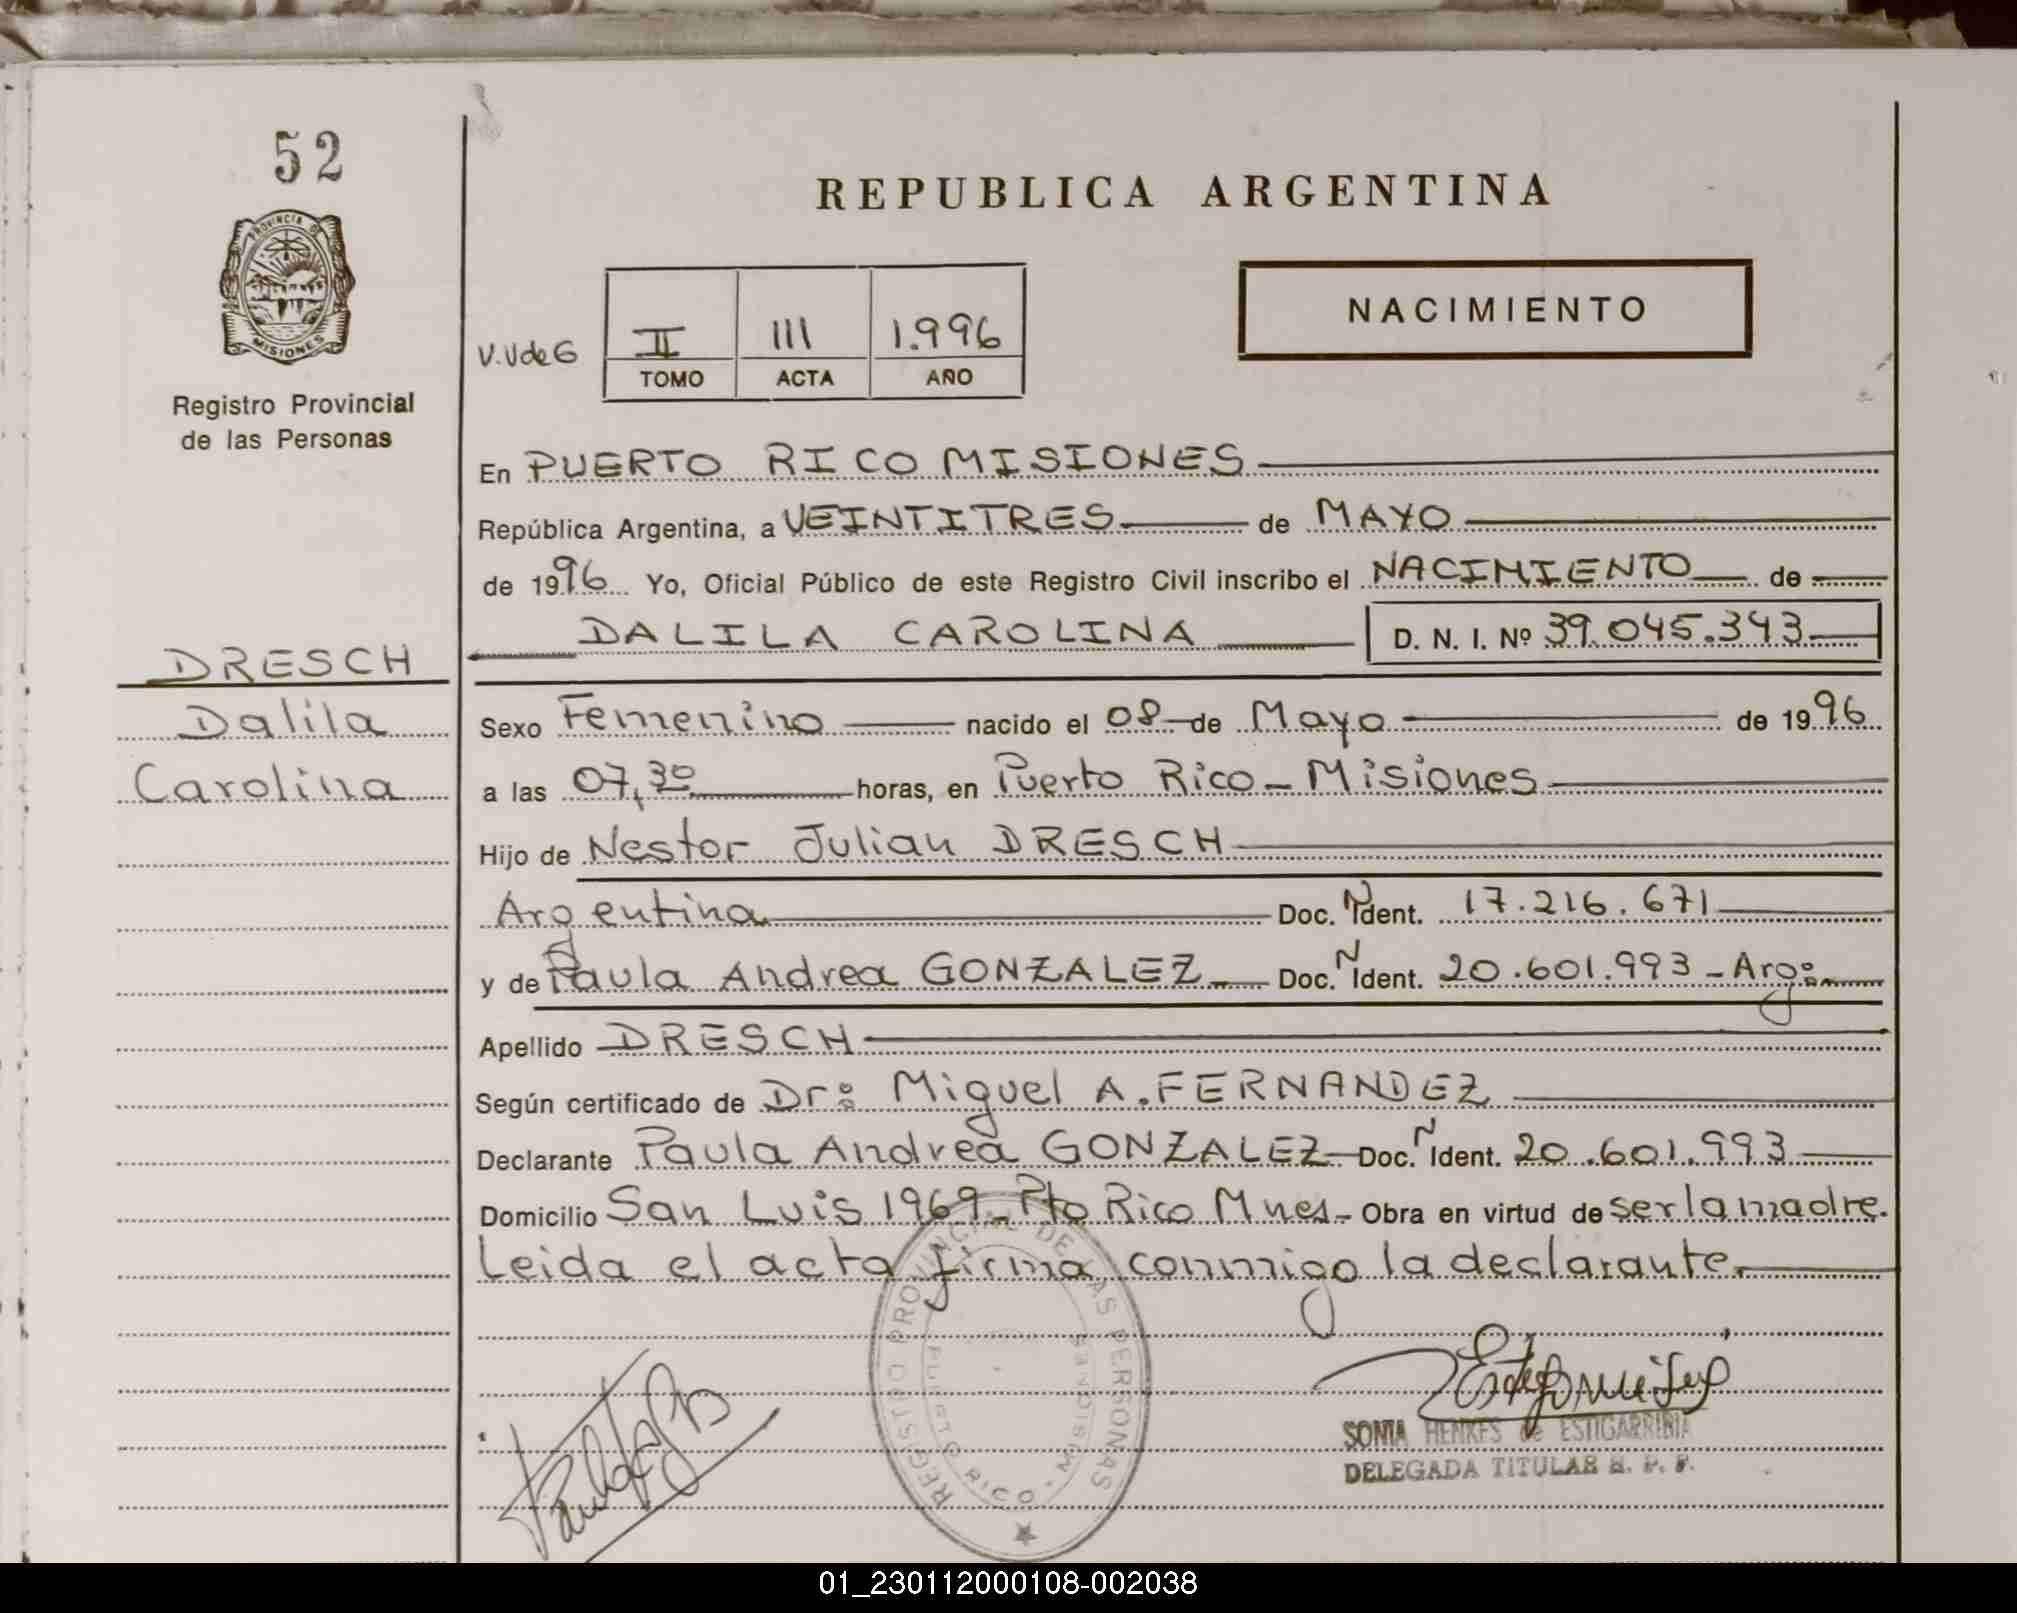 52
PROVINCIA DE
MISIONES
Registro Provincial
de las Personas
REPUBLICA ARGENTINA
V.V de G
II 111 1.996
TOMO ACTA AÑO
NACIMIENTO
En PUERTO RICO MISIONES
República Argentina, a VEINTITRES de MAYO
de 1996 Yo, Oficial Público de este Registro Civil inscribo el NACIMIENTO de
DALILA CAROLINA D. N. I. Nº 39.045.343
DRESCH
Dalila
Carolina
Sexo Femenino nacido el 08 de Mayo de 1996
a las 07,30 horas, en Puerto Rico - Misiones
Hijo de Nestor Julian DRESCH
Argentina Doc. N Ident. 17.216.671
y de Paula Andrea GONZALEZ Doc. N Ident. 20.601.993 - Arg:
Apellido DRESCH
Según certificado de Dr: Miguel A. FERNANDEZ
Declarante Paula Andrea GONZALEZ Doc. N Ident. 20.601.993
Domicilio San Luis 1969 - Pto Rico Mnes - Obra en virtud de ser la madre.
Leida el acta firma conmigo la declarante.
REGISTRO PROVINCIAL DE LAS PERSONAS
PUERTO RICO - MISIONES
SONIA HENKES de ESTIGARRIBIA
DELEGADA TITULAR R. P. P.
01_230112000108-002038